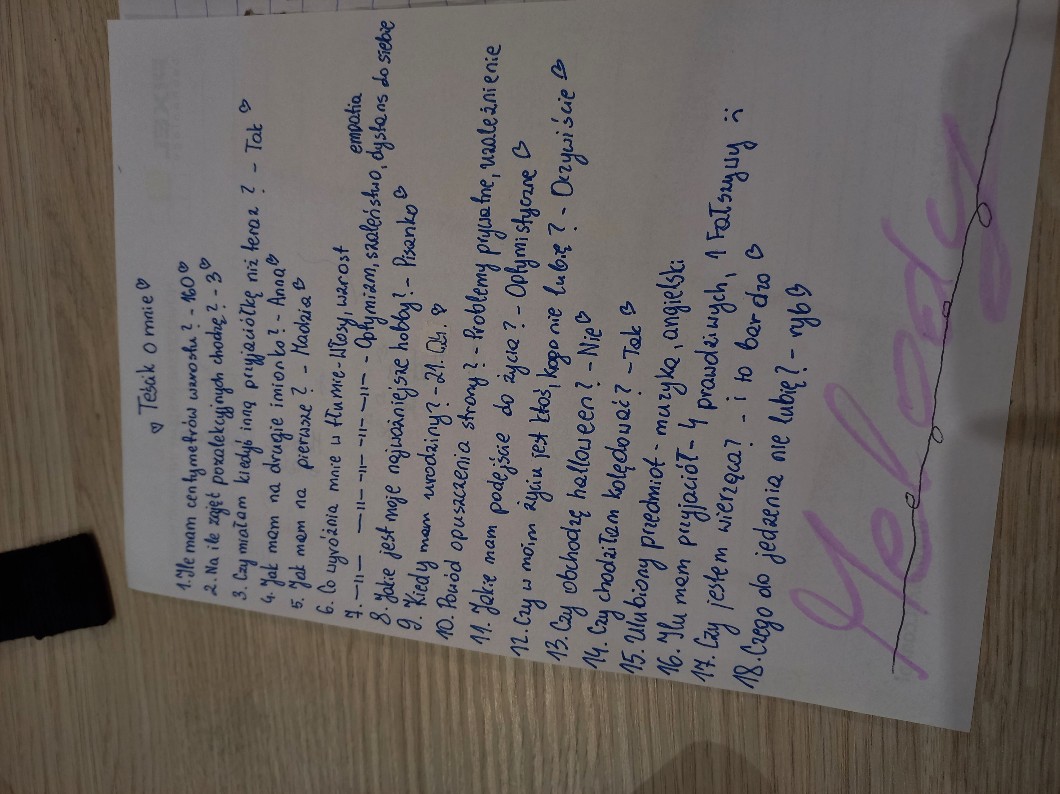 ♡ Teścik o mnie ♡
1. Ile mam centymetrów wzrostu? - 160 ♡
2. Na ile zajęt pozalekcyjnych chodzę? - 3 ♡
3. Czy miałam kiedyś inną przyjaciółkę niż teraz? - Tak ♡
4. Jak mam na drugie imionko? - Anna ♡
5. Jak mam na pierwsze? - Madzia ♡
6. Co wyróżnia mnie w tłumie - Włosy, wzrost
empatia
7. —11— —11— —11— —11— —11— - Optymizm, szaleństwo, dystans do siebie
8. Jakie jest moje najważniejsze hobby? - Pisanko ♡
9. Kiedy mam urodziny? - 21. ♡
10. Powód opuszczenia strony? - Problemy prywatne, uzależnienie
11. Jakie mam podejście do życia? - Optymistyczne ♡
12. Czy w moim życiu jest ktoś, kogo nie lubię? - Oczywiście ♡
13. Czy obchodzę halloween? - Nie ♡
14. Czy chodziłam kolędować? - Tak ♡
15. Ulubiony przedmiot - muzyka, angielski
16. Ilu mam przyjaciół - 4 prawdziwych, 1 Fałszywy :(
17. Czy jestem wierząca? - i to bardzo ♡
18. Czego do jedzenia nie lubię? - ryb ♡
Melody